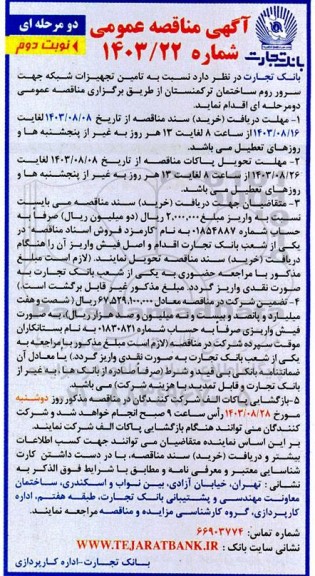 آگهی مناقصه عمومی
شماره ۱۴۰۳/۲۲
دو مرحله ای
نوبت دوم
بانک تجارت
بانک تجارت در نظر دارد نسبت به تامین تجهیزات شبکه جهت
سرور روم ساختمان ترکمنستان از طریق برگزاری مناقصه عمومی
دومرحله ای اقدام نماید.
۱- مهلت دریافت (خرید) سند مناقصه از تاریخ ۱۴۰۳/۰۸/۰۸ لغایت
۱۴۰۳/۰۸/۱۶ از ساعت ۸ لغایت ۱۳ هر روز به غیر از پنجشنبه ها و
روزهای تعطیل می باشد.
۲- مهلت تحویل پاکات مناقصه از تاریخ ۱۴۰۳/۰۸/۰۸ لغایت
۱۴۰۳/۰۸/۲۶ از ساعت ۸ لغایت ۱۳ هر روز به غیر از پنجشنبه ها و
روزهای تعطیل می باشد.
۳- متقاضیان جهت دریافت (خرید) سند مناقصه می بایست
نسبت به واریز مبلغ ۲,۰۰۰,۰۰۰ ریال (دو میلیون ریال) صرفاً به
حساب شماره ۰۱۸۵۴۸۸۷ به نام کارمزد فروش اسناد مناقصه در
یکی از شعب بانک تجارت اقدام و اصل فیش واریز آن را هنگام
دریافت (خرید) سند مناقصه تحویل نمایند. (لازم است مبلغ
مذکور با مراجعه حضوری به یکی از شعب بانک تجارت به
صورت نقدی واریز گردد. مبلغ مذکور غیر قابل برگشت است.)
۴- تضمین شرکت در مناقصه معادل ۶۷,۵۲۹,۱۰۰,۰۰۰ ریال (شصت و هفت
میلیارد و پانصد و بیست و نه میلیون و صد هزار ریال)، به صورت
فیش واریزی صرفاً به حساب شماره ۰۱۸۳۰۸۲۱ به نام بستانکاران
موقت سپرده شرکت در مناقصه، (لازم است مبلغ مذکور با مراجعه به
یکی از شعب بانک تجارت به صورت نقدی واریز گردد.) یا معادل آن
ضمانتنامه بانکی بی قید و شرط (صرفاً صادره از بانک ها، به غیر از
بانک تجارت و قابل تمدید با هزینه شرکت) می باشد.
۵-بازگشایی پاکات الف شرکت کنندگان در مناقصه مذکور روز دوشنبه
مورخ ۱۴۰۳/۰۸/۲۸ رأس ساعت ۹ صبح انجام خواهد شد و شرکت
کنندگان می توانند هنگام بازگشایی پاکات الف شرکت نمایند.
بر این اساس نماینده متقاضیان می توانند جهت کسب اطلاعات
بیشتر و دریافت (خرید) سند مناقصه، با در دست داشتن کارت
شناسایی معتبر و معرفی نامه و مطابق با شرایط فوق الذکر به
نشانی : تهران، خیابان آزادی، بین نواب و اسکندری، ساختمان
معاونت مهندسی و پشتیبانی بانک تجارت، طبقه هفتم، اداره
کارپردازی، گروه کارشناسی مزایده و مناقصه مراجعه نمایند.
شماره تماس: ۶۶۹۰۳۷۷۴
نشانی سایت بانک : WWW.TEJARATBANK.IR
بانک تجارت-اداره کارپردازی